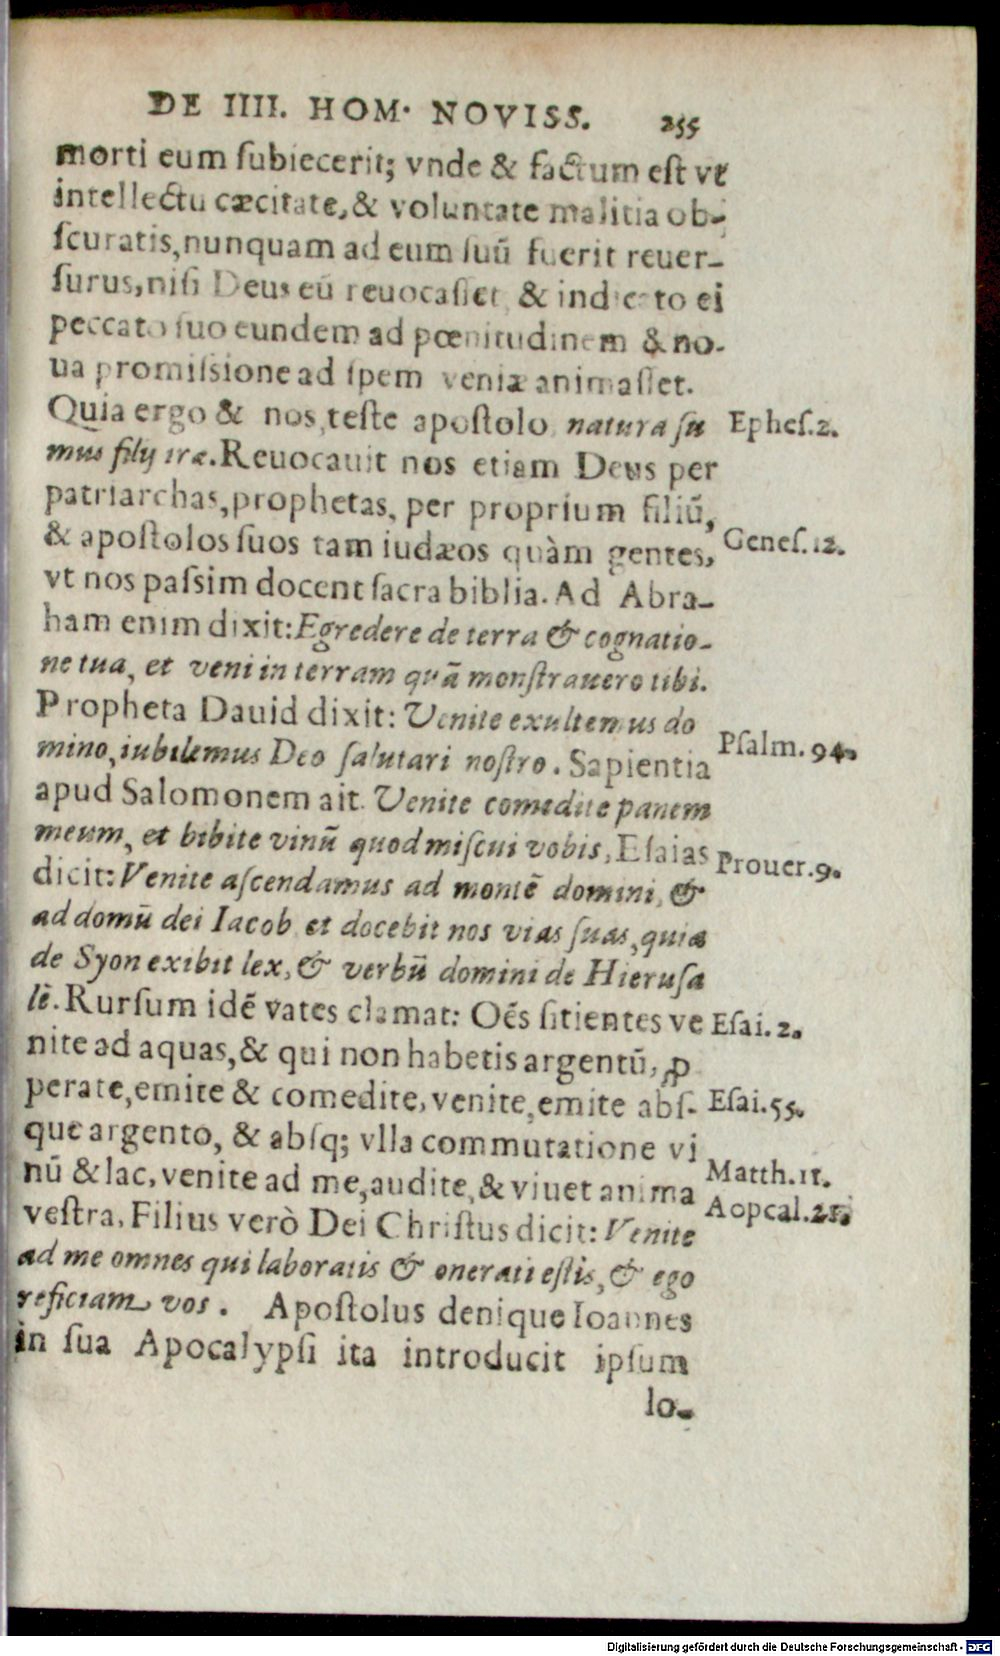 DE IIII. HOM. NOVISS. 255
morti eum ſubiecerit; vnde & factum eſt vt
intellectu cæcitate, & voluntate malitia ob-
ſcuratis, nunquam ad eum ſuū fuerit reuer-
ſurus, niſi Deus eū reuocaſſet, & indicato ei
peccato ſuo eundem ad pœnitudinem & no-
ua promiſsione ad ſpem veniæ animaſſet.
Quia ergo & nos, teſte apoſtolo natura ſu
Epheſ. 2.
mus filij iræ. Reuocauit nos etiam Deus per
patriarchas, prophetas, per proprium filiū,
& apoſtolos ſuos tam iudæos quàm gentes,
Geneſ. 12.
vt nos paſsim docent ſacra biblia. Ad Abra-
ham enim dixit: Egredere de terra & cognatio-
ne tua, et veni in terram quā monſtrauero tibi.
Propheta Dauid dixit: Venite exultemus do
Pſalm. 94.
mino, iubilemus Deo ſalutari noſtro. Sapientia
apud Salomonem ait. Venite comedite panem
meum, et bibite vinū quod miſcui vobis, Eſaias
Prouer. 9.
dicit: Venite aſcendamus ad montē domini, &
ad domū dei Iacob et docebit nos vias ſuas, quia
de Syon exibit lex, & verbū domini de Hieruſa
lē. Rurſum idē vates clamat: Oēs ſitientes ve
Eſai. 2.
nite ad aquas, & qui non habetis argentū, ꝓ
perate, emite & comedite, venite, emite abſ-
Eſai. 55.
que argento, & abſq; vlla commutatione vi
nū & lac, venite ad me, audite, & viuet anima
Matth. 11.
veſtra, Filius verò Dei Chriſtus dicit: Venite
Aopcal. 21.
ad me omnes qui laboratis & onerati eſtis, & ego
reficiam vos. Apoſtolus denique Ioannes
in ſua Apocalypſi ita introducit ipſum
lo-
Digitalisierung gefördert durch die Deutsche Forschungsgemeinschaft - DFG